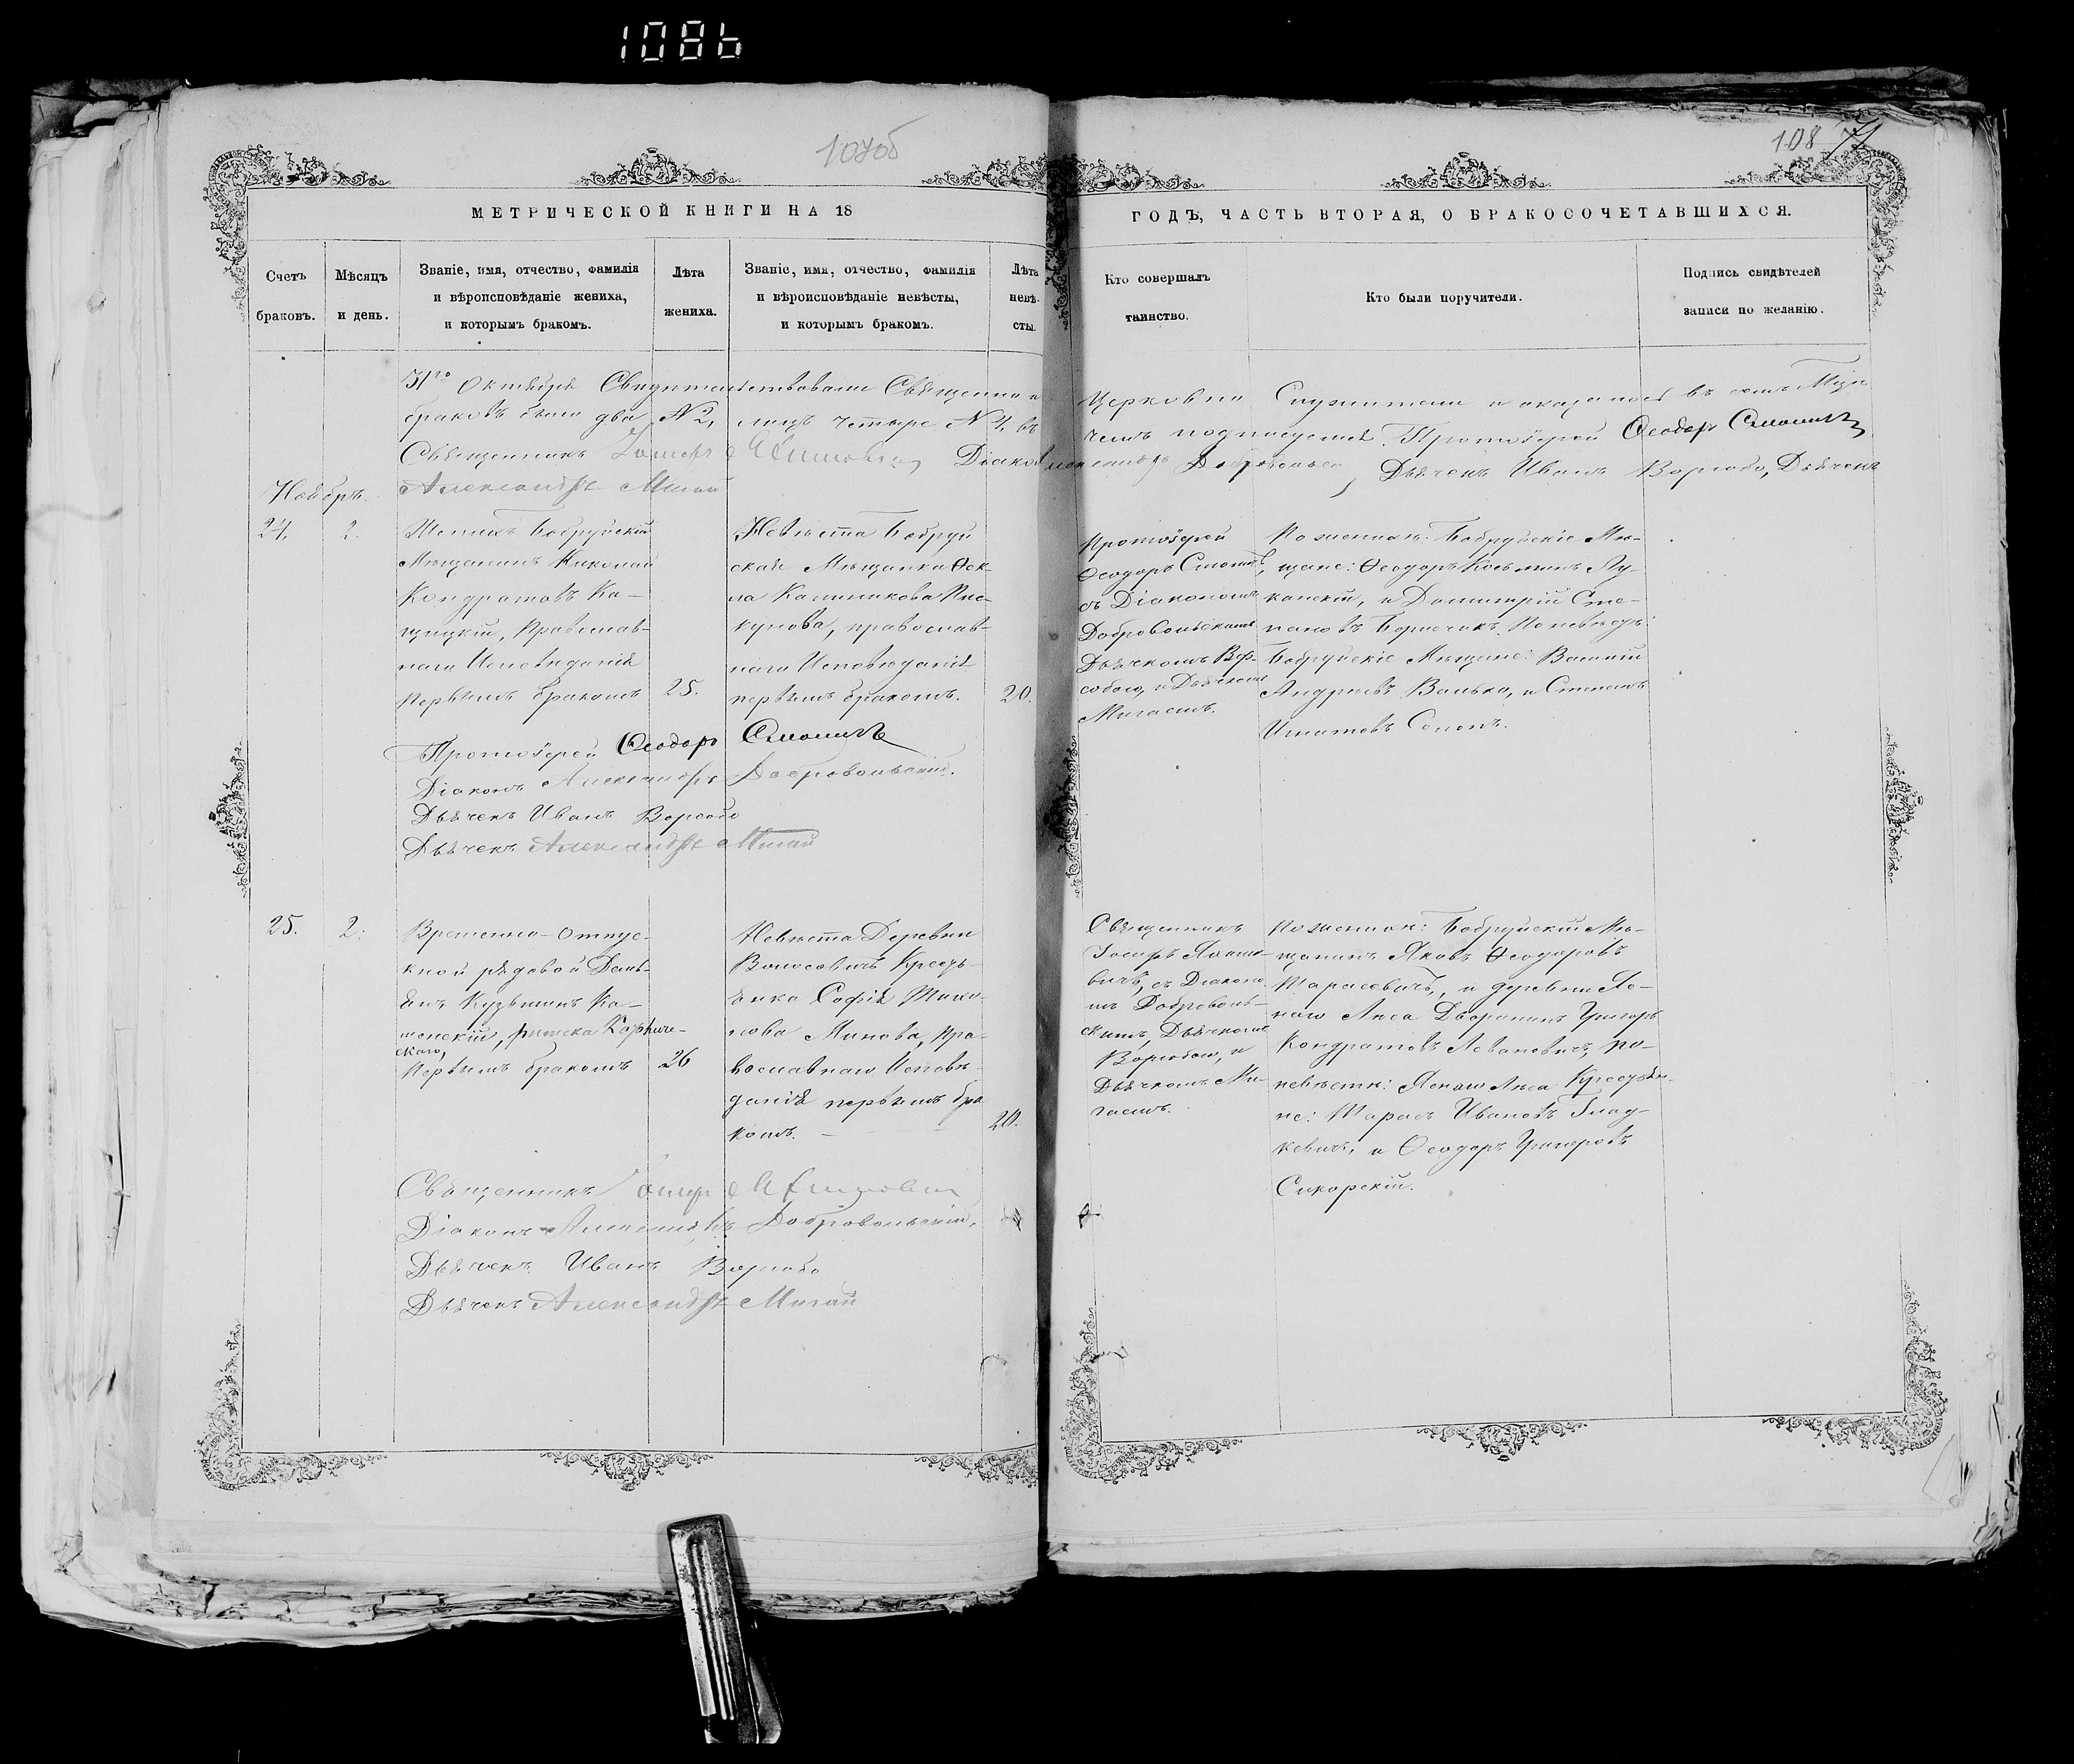 1086
107об
108 71
МЕТРИЧЕСКОЙ КНИГИ НА 18
ГОДЪ, ЧАСТЬ ВТОРАЯ, О БРАКОСОЧЕТАВШИХСЯ.
Счетъ
браковъ.
Мѣсяцъ
и день.
Званіе, имя, отчество, фамилія
и вѣроисповѣданіе жениха,
и которымъ бракомъ.
Лѣта
жениха.
Званіе, имя, отчество, фамилія
и вѣроисповѣданіе невѣсты,
и которымъ бракомъ.
Лѣта
невѣ-
сты.
Кто совершалъ
таинство.
Кто были поручители.
Подпись свидѣтелей
записи по желанію.
31го Октября Свидѣтельствовали Священно и Церковно Служители и оказалось въ семъ
браковъ было два № 2, лицъ четыре № 4, въ чемъ подписуемся. Протоіерей Ѳеодоръ Смоличъ
Священникъ Іосифъ Діаконъ Александръ Добровольскій, Дьячекъ Иванъ Воробо, Дьячекъ
Александръ Мигай
Ноябрь.
24.
2.
Женихъ Бобруйскій
Мѣщанинъ Николай
Кондратовъ Ка-
щицкій, Православ-
наго Исповѣданія
Первымъ бракомъ
25.
Невѣста Бобруй
ская Мѣщанка Ѳек-
ла Калиникова Пис-
кунова, православ-
наго Исповѣданія
первымъ бракомъ.
20.
Протоіерей
Ѳеодоръ Смоличъ,
съ Діакономъ
Добровольскимъ
Дьячкомъ Вор-
обою, и Дьячкомъ
Мигаемъ.
По женихѣ: Бобруйскіе Мѣ-
щане: Ѳеодоръ Козьминъ Лу-
канскій, и Димитрій Сте-
пановъ. По невѣстѣ:
Бобруйскіе Мѣщане: Василій
Андреевъ Валько, и Степанъ
Игнатовъ
Протоіерей Ѳеодоръ Смоличъ
Діаконъ Александръ Добровольскій.
Дьячекъ Иванъ Воробо
Дьячекъ Александръ Мигай
25.
2.
Временно-отпус-
кной рядовой Демь-
янъ Кузьминъ Ка-
менскій,
скаго,
Первымъ бракомъ
26
Невѣста Деревни
Волосовичъ Кресть-
янка Софія
Минова, Пра-
вославнаго Исповѣ-
данія первымъ бра
комъ.
20.
Священникъ
Іосифъ
вичъ, съ Діаконо
мъ Доброволь-
скимъ, Дьячкомъ
Воробою, и
Дьячкомъ Ми-
гаемъ.
По женихѣ: Бобруйскій Мѣ-
щанинъ Яковъ Ѳеодоровъ
Тарасевичъ, и деревни Яс-
наго Лѣса Дворянинъ Григорій
Кондратовъ Левановичъ, по
невѣстѣ: Яснаго Лѣса Крестья-
не: Тарасъ Ивановъ Глад-
кевичъ, и Ѳеодоръ Григоровъ
Сикорскій.
Священникъ Іосифъ
Діаконъ Александръ Добровольскій,
Дьячекъ Иванъ Воробо
Дьячекъ Александръ Мигай